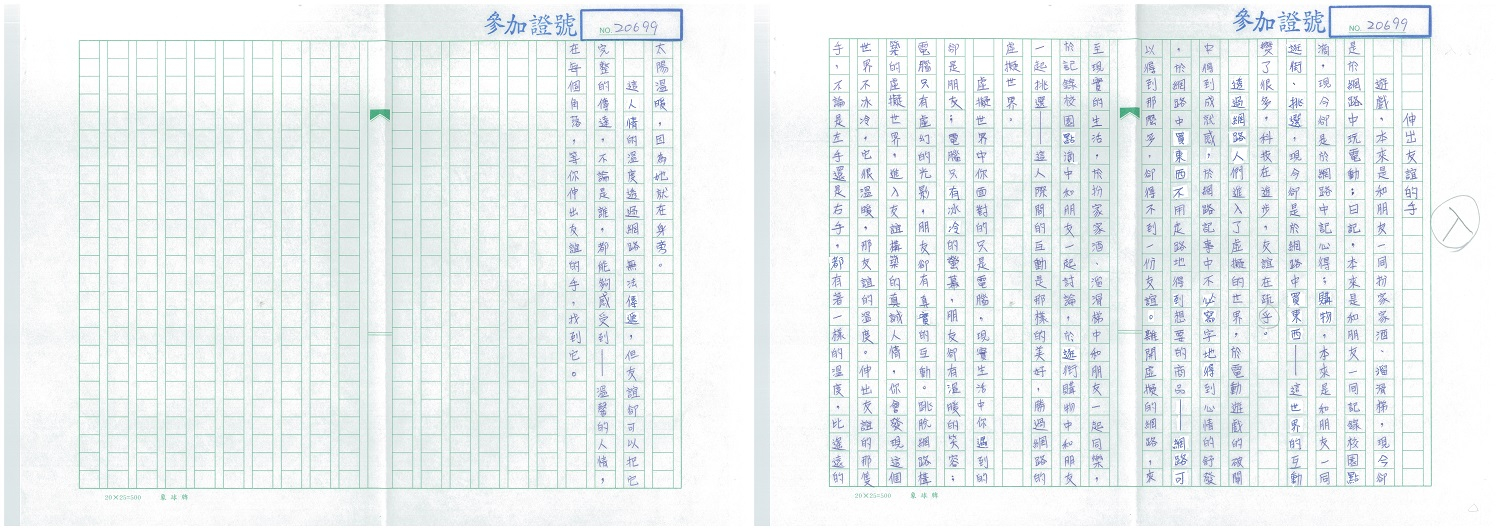 參加證號 NO. 20699
伸出友誼的手
遊戲，本來是和朋友一同扮家家酒、溜滑梯，現今卻
是於網路中玩電動；日記，本來是和朋友一同記錄校園點
滴，現今卻是於網路中記心得；購物，本來是和朋友一同
逛街、挑選，現今卻是於網路中買東西——這世界的互動
變了很多，科技在進步，友誼在疏乎。
透過網路人們進入了虛擬的世界，於電動遊戲的破關
中得到成就感，於網路記事中不必寫字地得到心情的紓發
，於網路中買東西不用走路地得到想要的商品——網路可
以得到那麼多，卻得不到一份友誼。離開虛擬的網路，來
至現實的生活，於扮家家酒、溜滑梯中和朋友一起同樂，
於記錄校園點滴中和朋友一起討論，於逛街購物中和朋友
一起挑選——這人際間的互動是那樣的美好，勝過網路的
虛擬世界。
虛擬世界中你面對的只是電腦，現實生活中你遇到的
卻是朋友；電腦只有冰冷的螢幕，朋友卻有溫暖的笑容；
電腦只有虛幻的光影，朋友卻有真實的互動。跳脫網路構
築的虛擬世界，進入友誼構築的真誠人情，你會發現這個
世界不冰冷，它很溫暖，那友誼的溫度。伸出友誼的那隻
手，不論是左手還是右手，都有著一樣的溫度，比遙遠的
20×25=500 象球牌
入
參加證號 NO. 20699
太陽溫暖，因為她就在身旁。
這人情的溫度透過網路無法傳遞，但友誼卻可以把它
完整的傳達，不論是誰，都能夠感受到——溫馨的人情，
在每個角落，等你伸出友誼的手，找到它。
20×25=500 象球牌